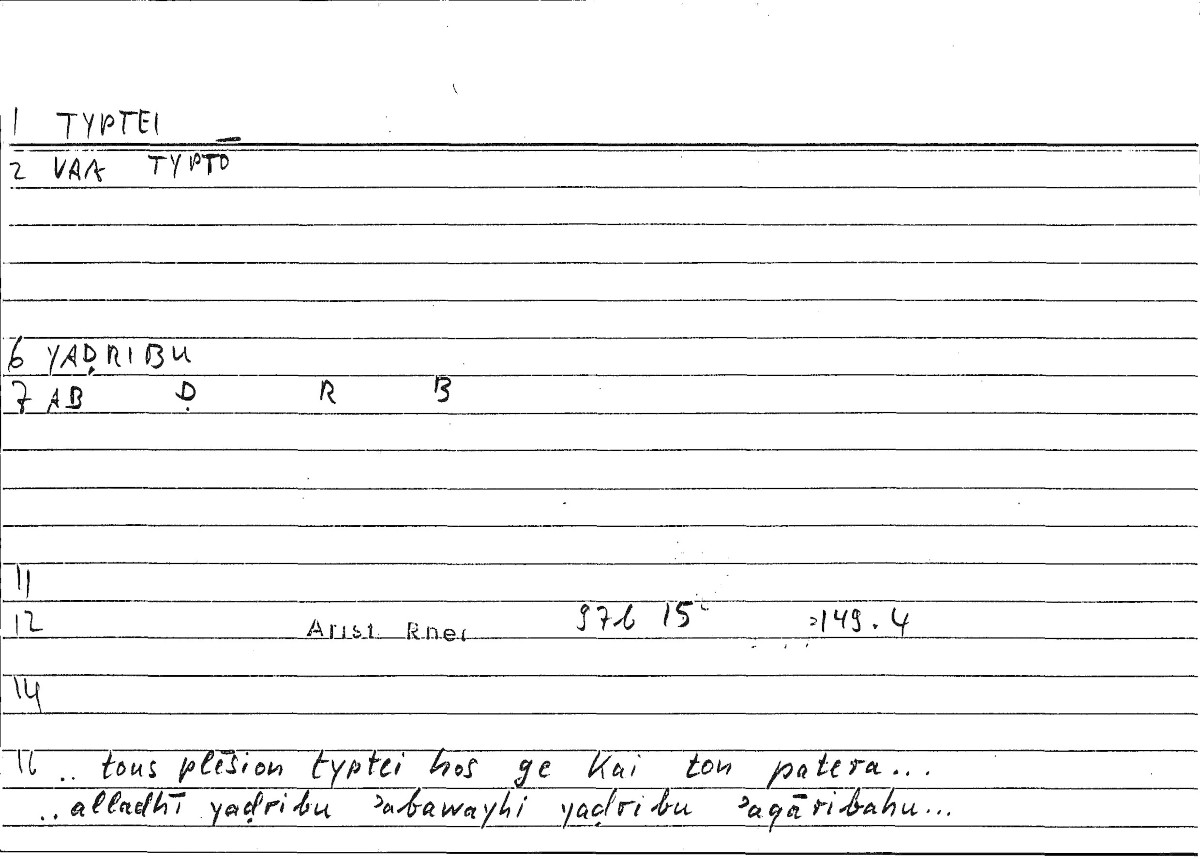 1 TYPTEI
2 VAA TYPTŌ
6 YAḌRIBU
7 AB Ḍ R B
11
12 Arist Rhet 97b 15 149.4
14
16 .. tous plēsion typtei hos ge kai ton patera...
.. alladhī yaḍribu ʾabawayhi yaḍribu ʾaqāribahu...